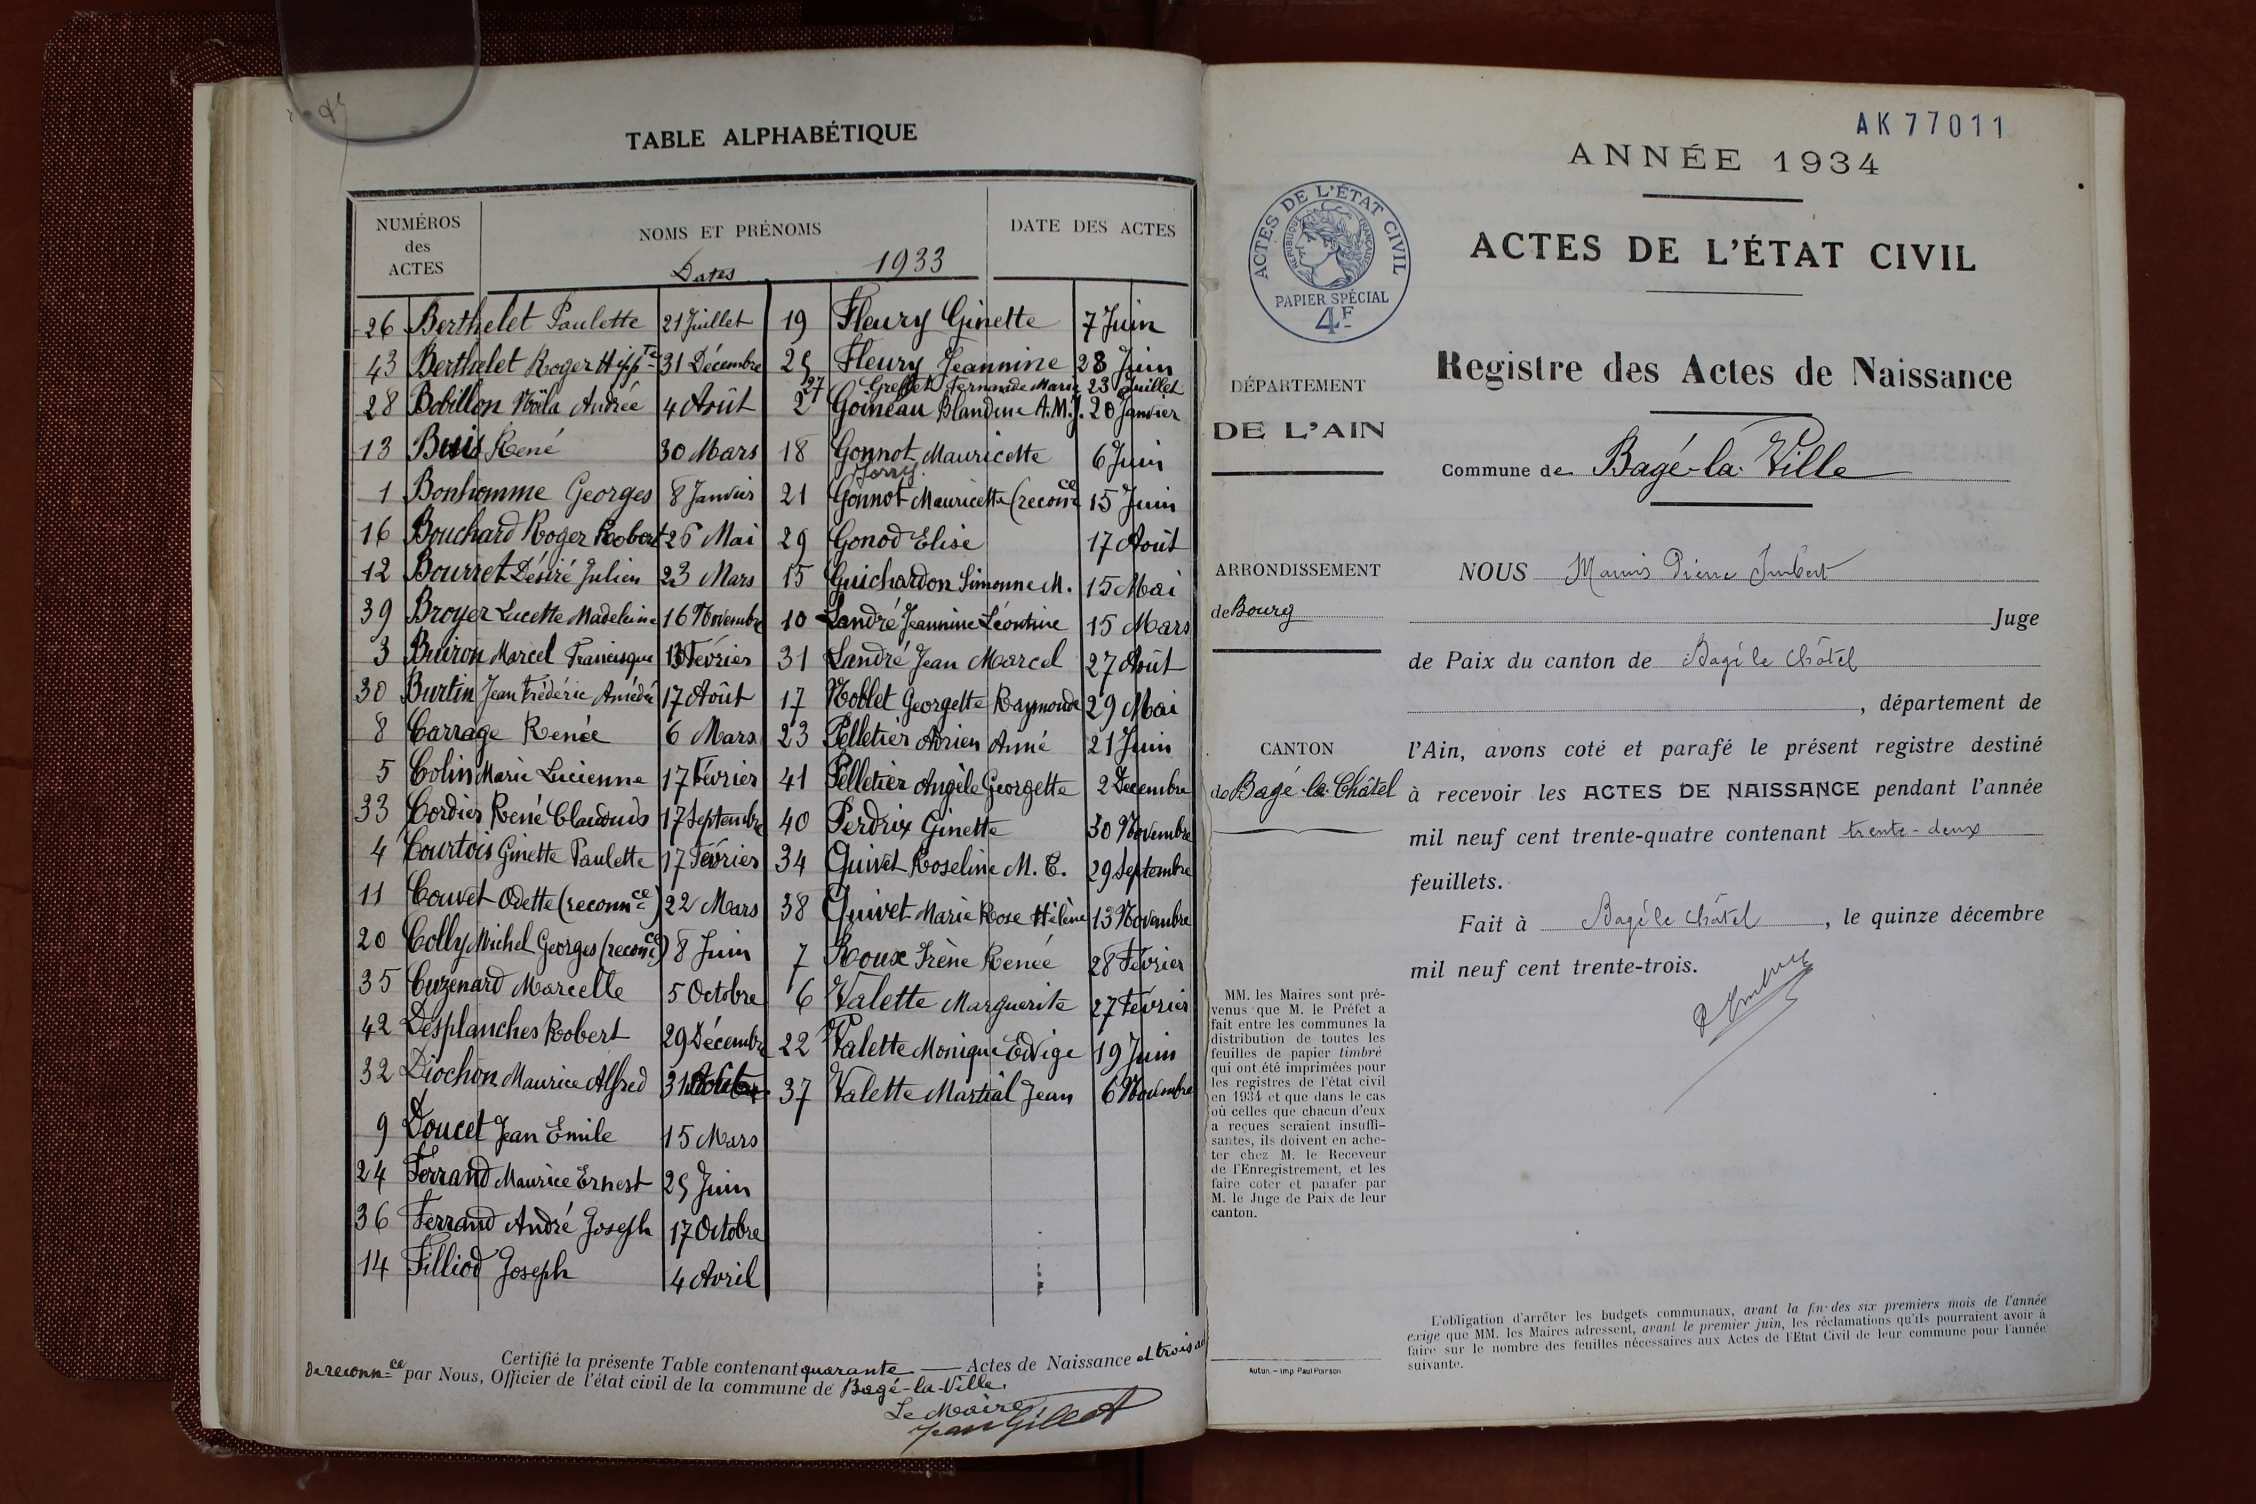 TABLE ALPHABÉTIQUE
NUMÉROS des ACTES
NOMS ET PRÉNOMS
DATE DES ACTES
Dates 1933
26 Berthelet Paulette 21 Juillet
43 Berthelet Roger Hippte 31 Décembre
28 Bobillon Noëla Andrée 4 Août
13 Buis René 30 Mars
1 Bonhomme Georges 8 Janvier
16 Bouchard Roger Robert 26 Mai
12 Bourret Désiré Julien 23 Mars
39 Broyer Lucette Madeleine 16 Novembre
3 Buiron Marcel Francisque 13 Février
30 Burtin Jean Frédéric Amédée 17 Août
8 Carrage Renée 6 Mars
5 Colin Marie Lucienne 17 Février
33 Cordier René Claudius 17 Septembre
4 Courtois Ginette Paulette 17 Février
11 Couvet Odette (reconnce) 22 Mars
20 Colly Michel Georges (reconce) 8 Juin
35 Cuzenard Marcelle 5 Octobre
42 Desplanches Robert 29 Décembre
32 Diochon Maurice Alfred 31
9 Doucet Jean Emile 15 Mars
24 Ferrand Maurice Ernest 25 Juin
36 Ferrand André Joseph 17 Octobre
14 Filliod Joseph 4 Avril
19 Fleury Ginette 7 Juin
25 Fleury Jeannine 28 Juin
27 Greffet Fernande Maria 23 Juillet
2 Goineau Blandine A.M.J. 20 Janvier
18 Gonnot Mauricette 6 Juin
Jorry
21 Gonnot Mauricette (reconce 15 Juin
29 Gonod Elise 17 Août
15 Guichardon Simonne M. 15 Mai
10 Landré Jeannine Léontine 15 Mars
31 Landré Jean Marcel 27 Août
17 Noblet Georgette Raymonde 29 Mai
23 Pelletier Adrien Aimé 21 Juin
41 Pelletier Angèle Georgette 2 Decembre
40 Perdrix Ginette 30 Novembre
34 Quivet Roseline M. C. 29 Septembre
38 Quivet Marie Rose Hélène 13 Novembre
7 Roux Irène Renée 28 Février
6 Valette Marguerite 27 Février
22 Valette Monique Edvige 19 Juin
37 Valette Martial Jean 6 Novembre
Certifié la présente Table contenant quarante Actes de Naissance et trois ac
De reconnce par Nous, Officier de l'état civil de la commune de Bagé-la-Ville.
Le Maire
Jean Gillet
AK77011
ANNÉE 1934
ACTES DE L'ÉTAT CIVIL
ACTES DE L'ÉTAT CIVIL
RÉPUBLIQUE FRANÇAISE
PAPIER SPÉCIAL
4F
Registre des Actes de Naissance
Commune de Bagé-la-Ville
DÉPARTEMENT
DE L'AIN
ARRONDISSEMENT
de Bourg
CANTON
de Bagé-le-Châtel
MM. les Maires sont pré-
venus que M. le Préfet a
fait entre les communes la
distribution de toutes les
feuilles de papier timbré
qui ont été imprimées pour
les registres de l'état civil
en 1934 et que dans le cas
où celles que chacun d'eux
a reçues seraient insuffi-
santes, ils doivent en ache-
ter chez M. le Receveur
de l'Enregistrement, et les
faire coter et parafer par
M. le Juge de Paix de leur
canton.
Autun. - Imp. Paul Poirson
NOUS Marius Pierre Imbert
Juge
de Paix du canton de Bagé le Châtel
, département de
l'Ain, avons coté et parafé le présent registre destiné
à recevoir les ACTES DE NAISSANCE pendant l'année
mil neuf cent trente-quatre contenant trente-deux
feuillets.
Fait à Bagé le Châtel, le quinze décembre
mil neuf cent trente-trois.
L'obligation d'arrêter les budgets communaux, avant la fin des six premiers mois de l'année
exige que MM. les Maires adressent, avant le premier juin, les réclamations qu'ils pourraient avoir à
faire sur le nombre des feuilles nécessaires aux Actes de l'Etat Civil de leur commune pour l'année
suivante.